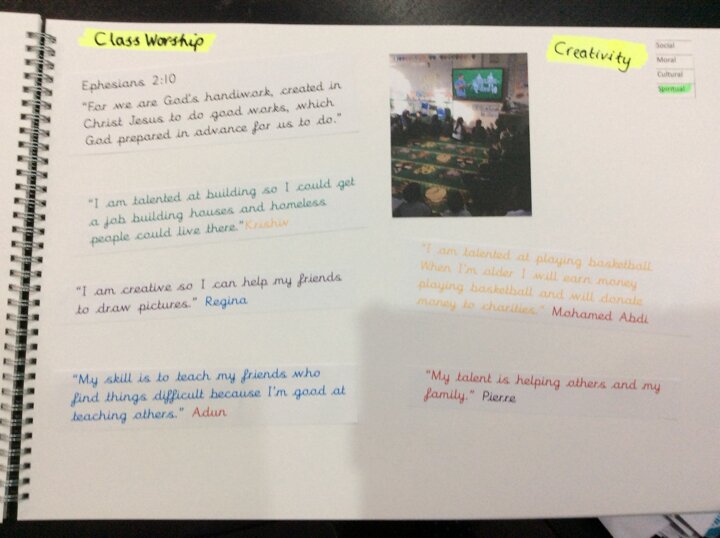 Class Worship
Ephesians 2:10
"For we are God's handiwork, created in
Christ Jesus to do good works, which
God prepared in advance for us to do."
"I am talented at building so I could get
a job building houses and homeless
people could live there." Krishiv
"I am creative so I can help my friends
to draw pictures." Regina
"My skill is to teach my friends who
find things difficult because I'm good at
teaching others." Adun
Creativity
Social
Moral
Cultural
Spiritual
"I am talented at playing basketball.
When I'm older I will earn money
playing basketball and will donate
money to charities." Mohamed Abdi
"My talent is helping others and my
family." Pierre